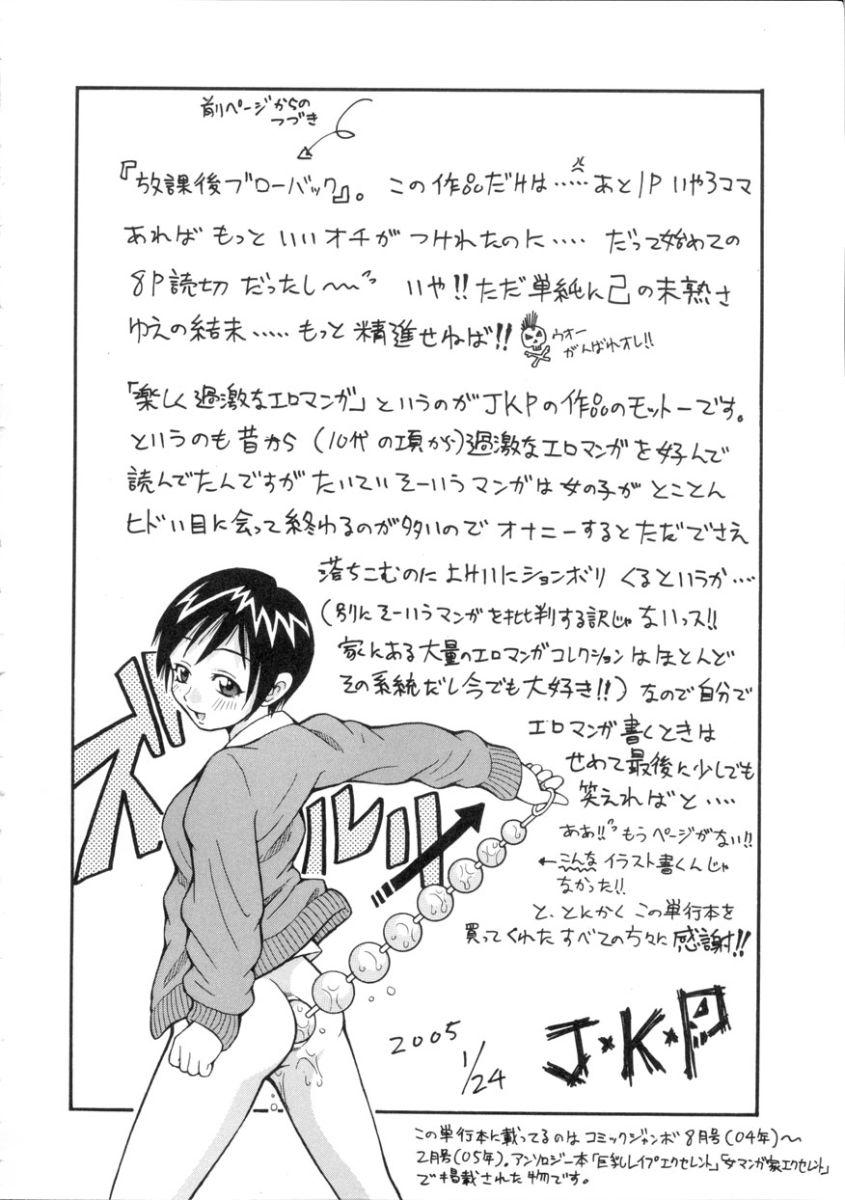 前ページからの
つづき
『放課後ブローバック』。この作品だけは……あと1Pいや3コマ
あればもっといいオチがつけれたのに…‥だって始めての
8P読切だったし〜〜 いや!!ただ単純に己の未熟さ
ゆえの結末……もっと精進せねば!!
ウオー
がんばれオレ!!
「楽しく過激なエロマンガ」というのがJKPの作品のモットーです。
というのも昔から(10代の頃から)過激なエロマンガを好んで
読んでたんですがたいていそーいうマンガは女の子がとことん
ヒドい目に会って終わるのが多いのでオナニーするとただでさえ
落ちこむのによけいにションボリくるというか…‥
(別にそーいうマンガを批判する訳じゃないっス!!
家にある大量のエロマンガコレクションはほとんど
その系統だし今でも大好き!!)なので自分で
エロマンガ書くときは
せめて最後に少しでも
笑えればと…‥
ああ!!もうページがない!!
←こんなイラスト書くんじゃ
なかった!!
と、とにかくこの単行本を
買ってくれたすべての方々に感謝!!
ズルルッ
2005
1/24
J・K・P
この単行本に載ってるのはコミックジャンボ8月号(04年)〜
2月号(05年)。アンソロジー本「巨乳レイプエクセレント」「女マンガ家エクセレント」
で掲載された物です。